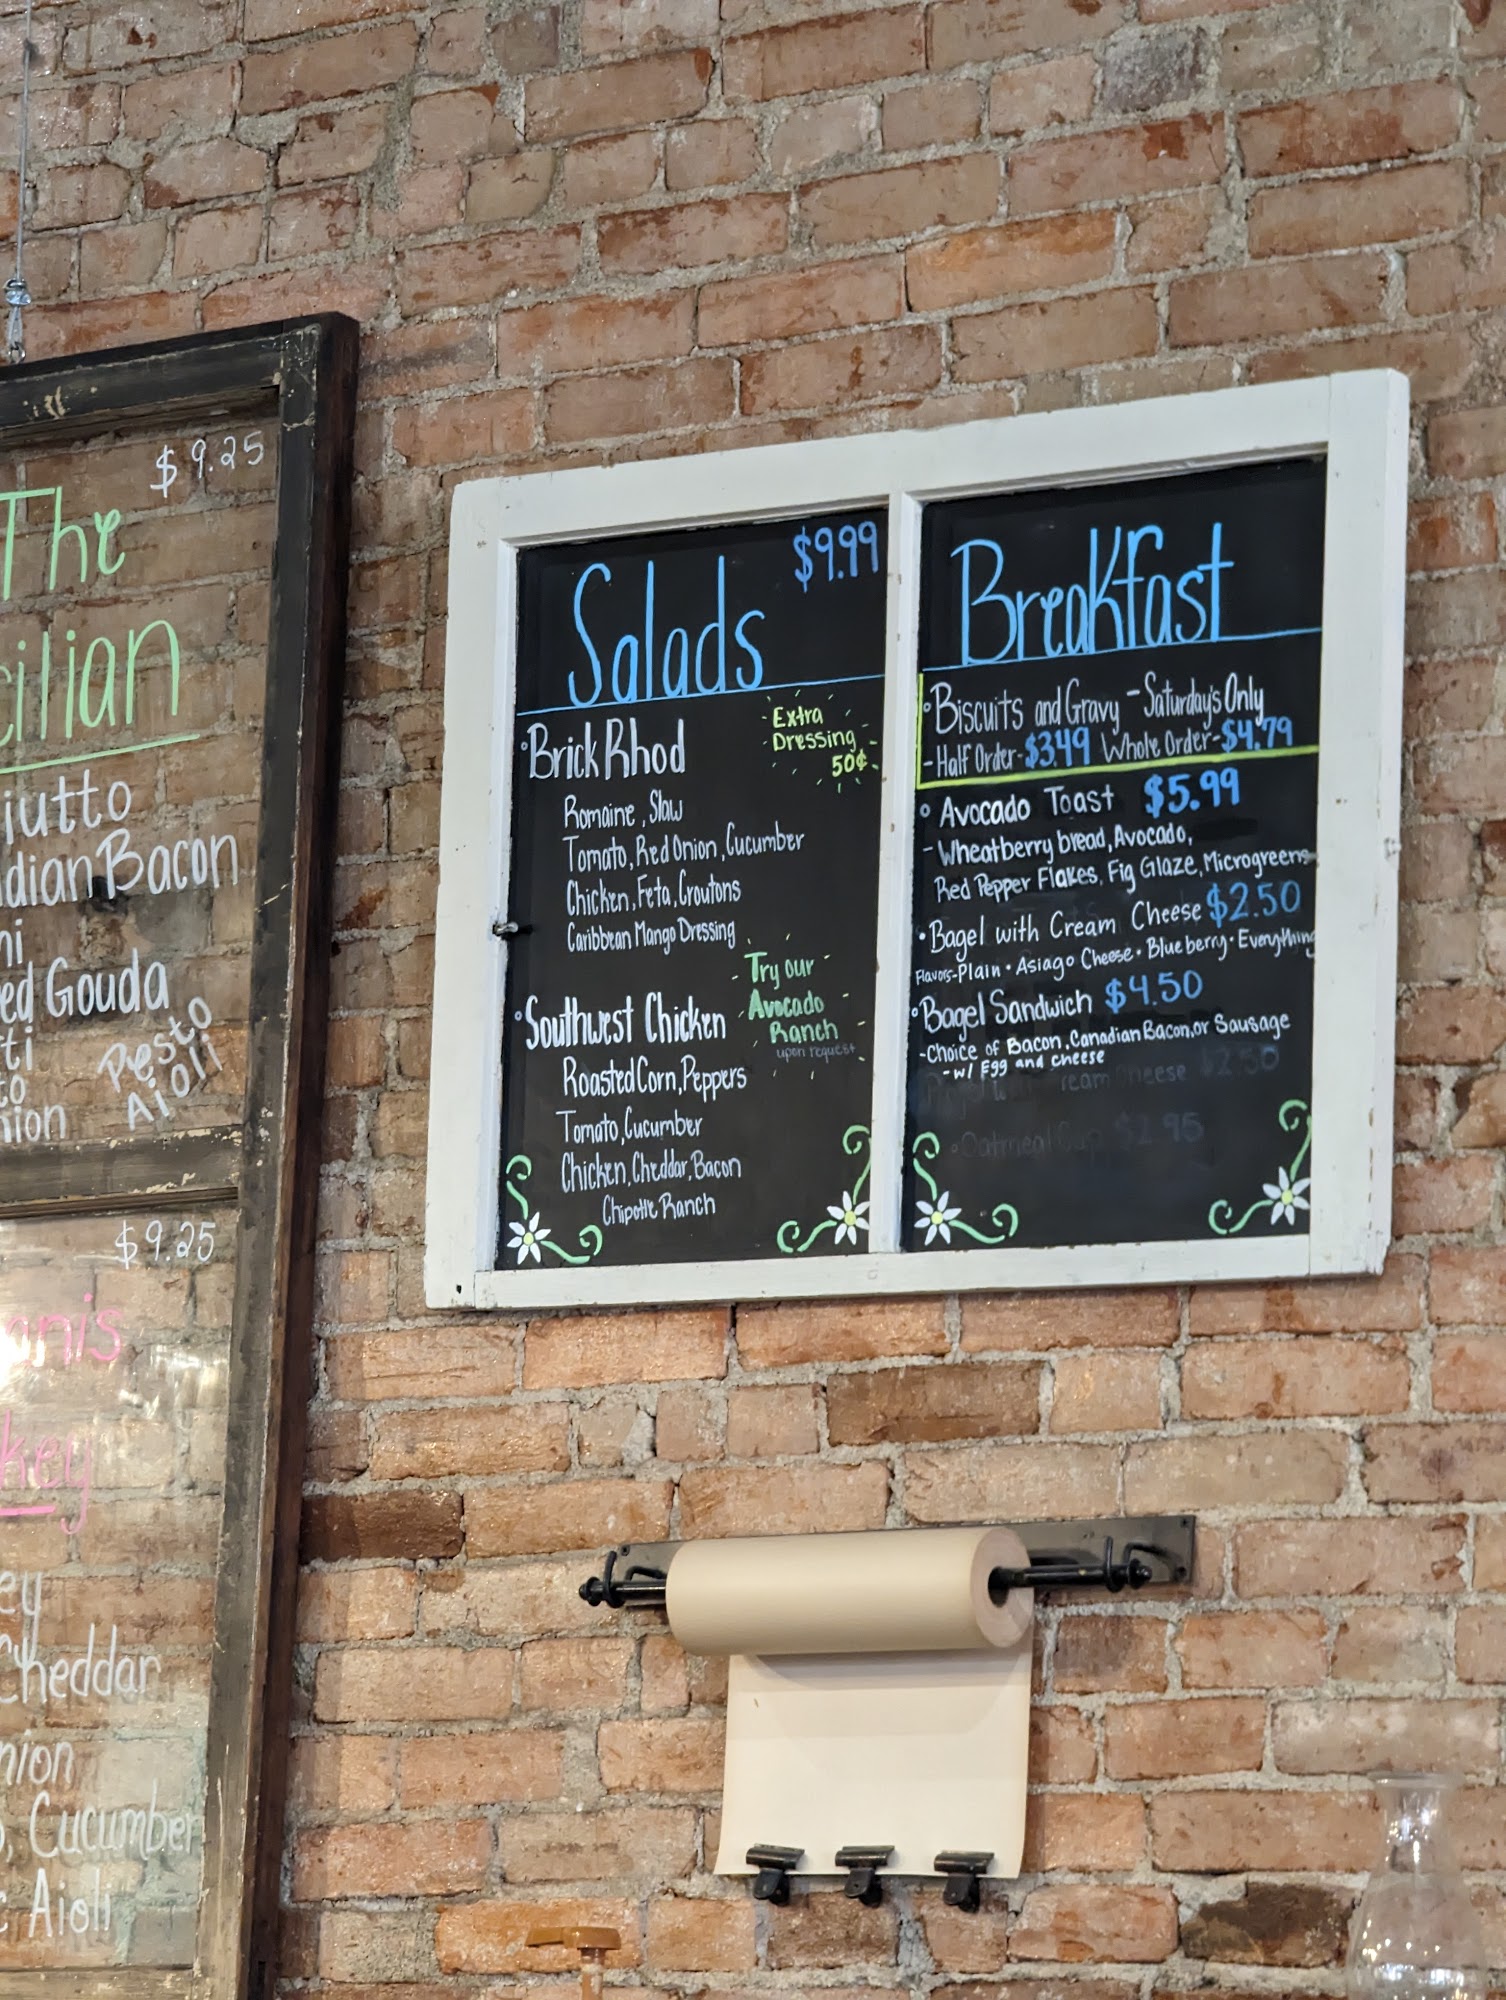 $9.25
The
cilian
iutto
dian Bacon
ni
ed Gouda
ti
to
nion
Pesto
Aioli
$9.25
anis
key
ey
Cheddar
nion
, Cucumber
c Aioli
Salads
$9.99
Extra
Dressing
50¢
°Brick Rhod
Romaine, Slaw
Tomato, Red Onion, Cucumber
Chicken, Feta, Croutons
Caribbean Mango Dressing
Try our
Avocado
Ranch
upon request
°Southwest Chicken
Roasted Corn, Peppers
Tomato, Cucumber
Chicken, Cheddar, Bacon
Chipotle Ranch
Breakfast
°Biscuits and Gravy - Saturday's Only
- Half Order - $3.49 Whole Order - $4.79
° Avocado Toast $5.99
- Wheatberry bread, Avocado,
Red Pepper Flakes, Fig Glaze, Microgreens
•Bagel with Cream Cheese $2.50
Flavors-Plain • Asiago Cheese • Blueberry • Everything
°Bagel Sandwich $4.50
-Choice of Bacon, Canadian Bacon, or Sausage
-w/ Egg and cheese
ream Cheese $2.50
°Oatmeal Cup $2.95